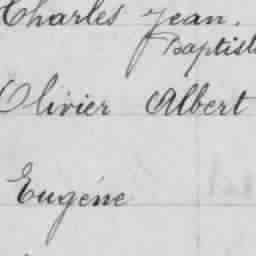 Charles Jean.
Baptiste
Olivier Albert
Eugéne